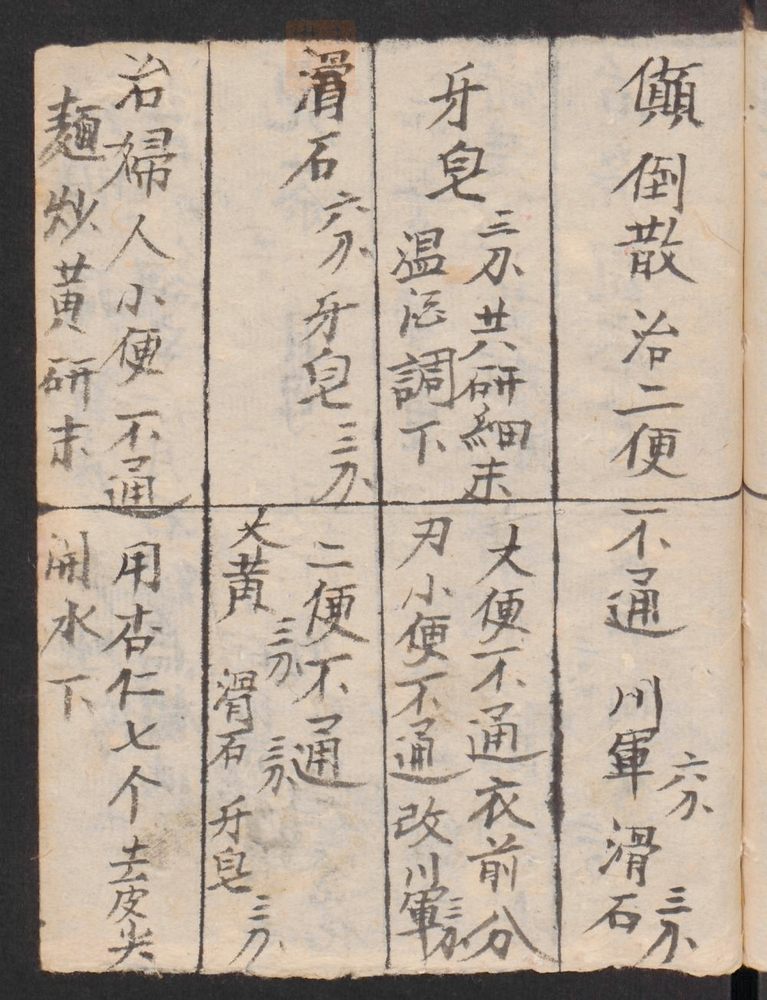 顛倒散 治二便不通 川軍六分 滑石三分
牙皂三分共研細末
温酒調下
大便不通衣前分
刃小便不通改川軍三分
滑石六分 牙皂三分
二便不通
大黄三分 滑石三分 牙皂三分
治婦人小便不通 用杏仁七个去皮尖
麵炒黄研末 開水下